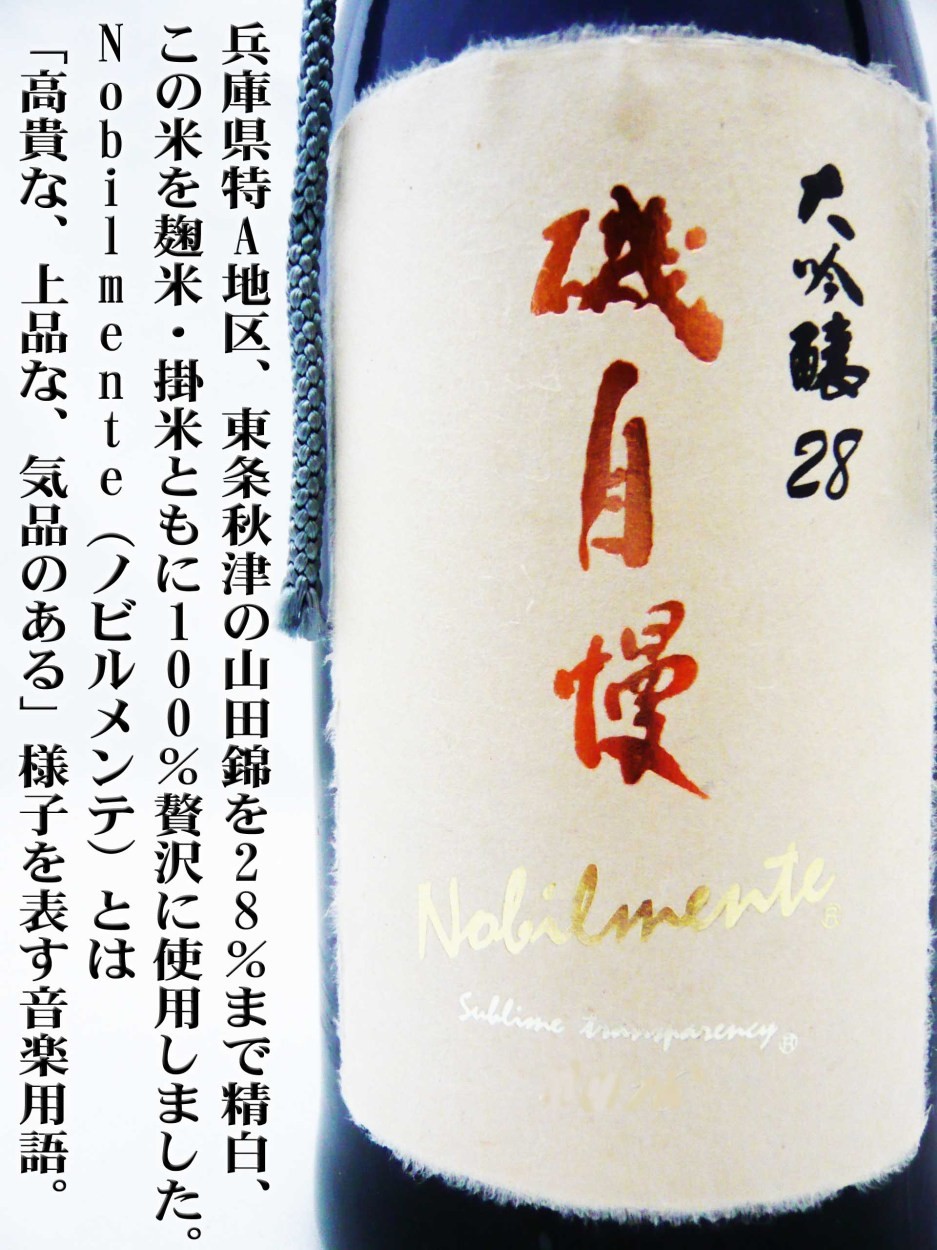 兵庫県特A地区、東条秋津の山田錦を28%まで精白、
この米を麹米・掛米ともに100%贅沢に使用しました。
Nobilmente(ノビルメンテ)とは
「高貴な、上品な、気品のある」様子を表す音楽用語。
大吟醸28
磯自慢
Nobilmente®
Sublime transparency®